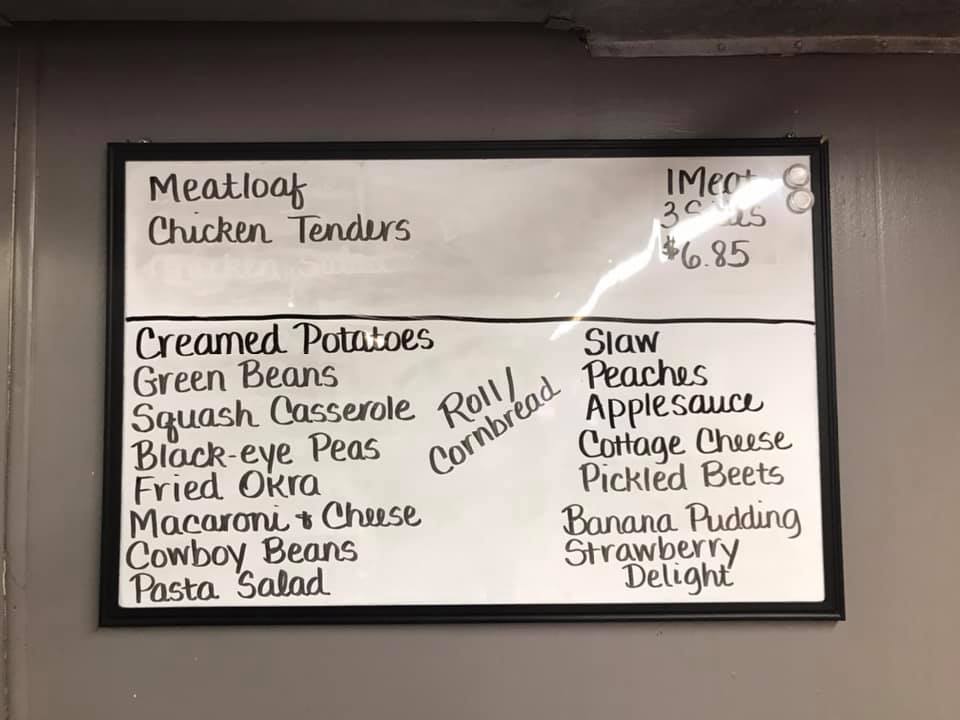 Meatloaf
Chicken Tenders
1 Meat
3 Sides
$6.85
Creamed Potatoes
Green Beans
Squash Casserole
Black-eye Peas
Fried Okra
Macaroni & Cheese
Cowboy Beans
Pasta Salad
Roll/
Cornbread
Slaw
Peaches
Applesauce
Cottage Cheese
Pickled Beets
Banana Pudding
Strawberry
Delight